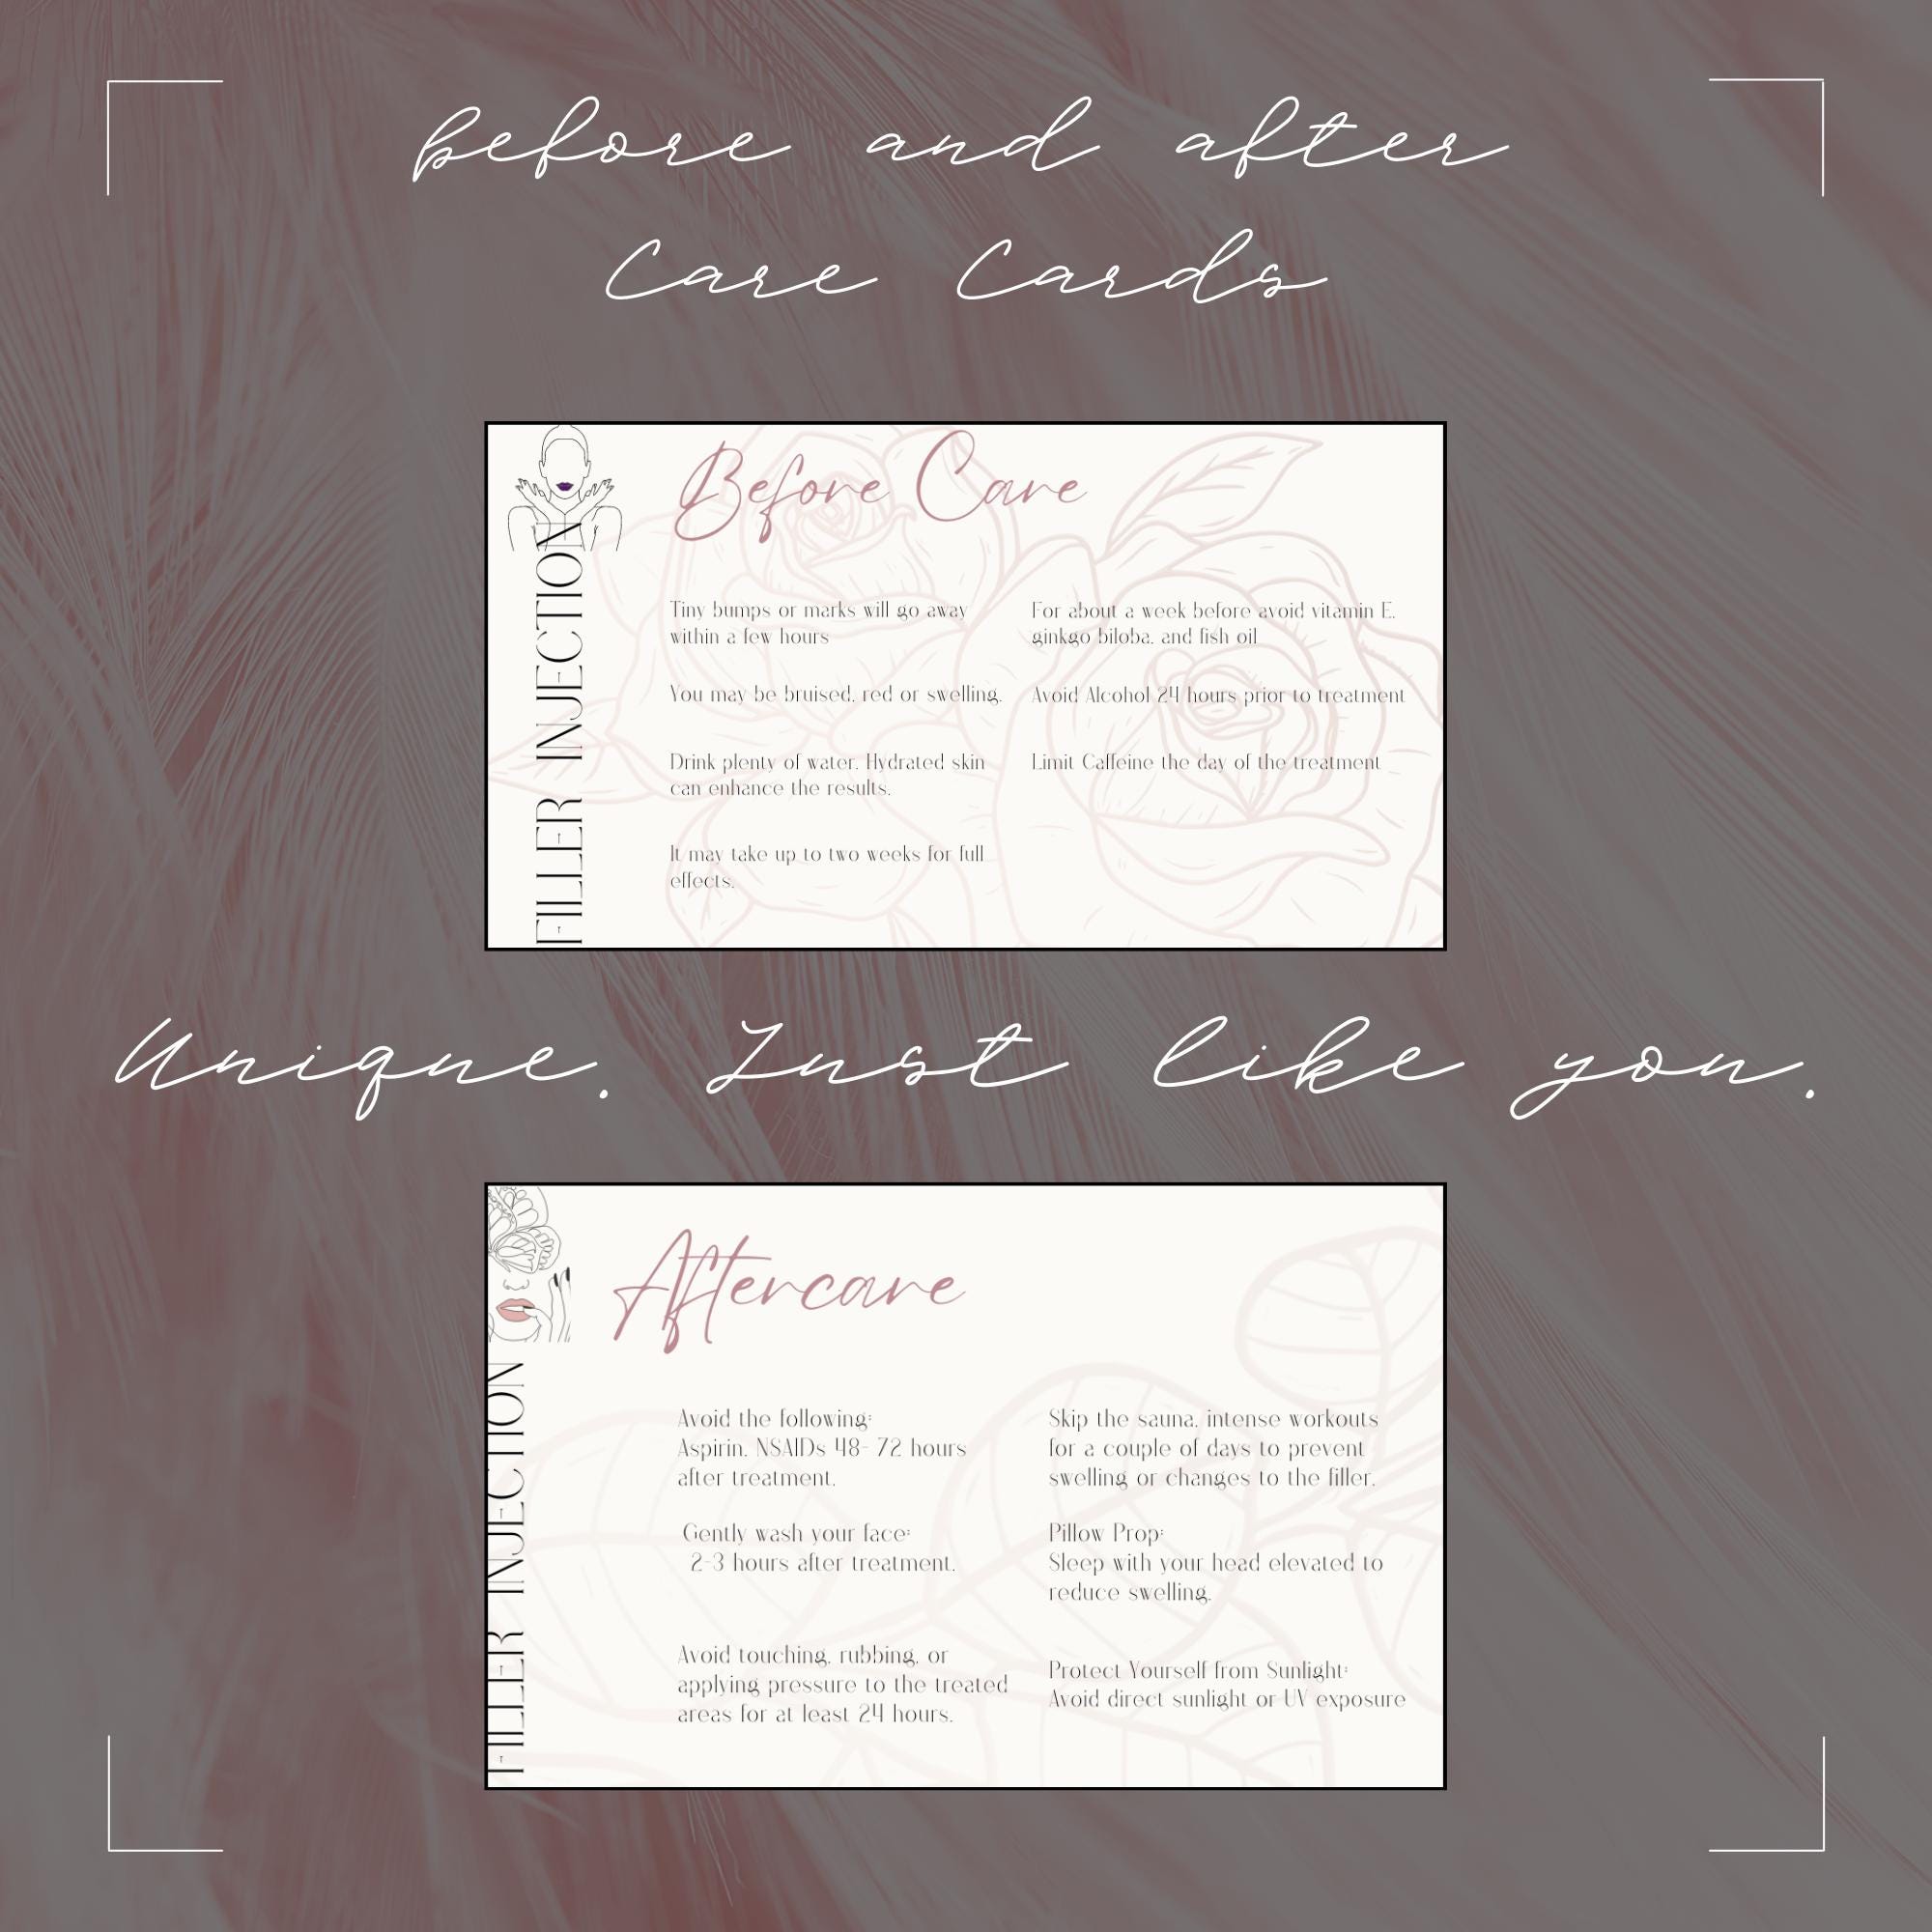 before and after
Care Cards
Before Care
FILLER INJECTION
Tiny bumps or marks will go away
within a few hours
You may be bruised, red or swelling.
Drink plenty of water. Hydrated skin
can enhance the results.
It may take up to two weeks for full
effects.
For about a week before avoid vitamin E,
ginkgo biloba, and fish oil
Avoid Alcohol 24 hours prior to treatment
Limit Caffeine the day of the treatment
Unique. Just like you.
Aftercare
FILLER INJECTION
Avoid the following:
Aspirin, NSAIDs 48- 72 hours
after treatment.
Gently wash your face:
2-3 hours after treatment.
Avoid touching, rubbing, or
applying pressure to the treated
areas for at least 24 hours.
Skip the sauna, intense workouts
for a couple of days to prevent
swelling or changes to the filler.
Pillow Prop:
Sleep with your head elevated to
reduce swelling.
Protect Yourself from Sunlight:
Avoid direct sunlight or UV exposure